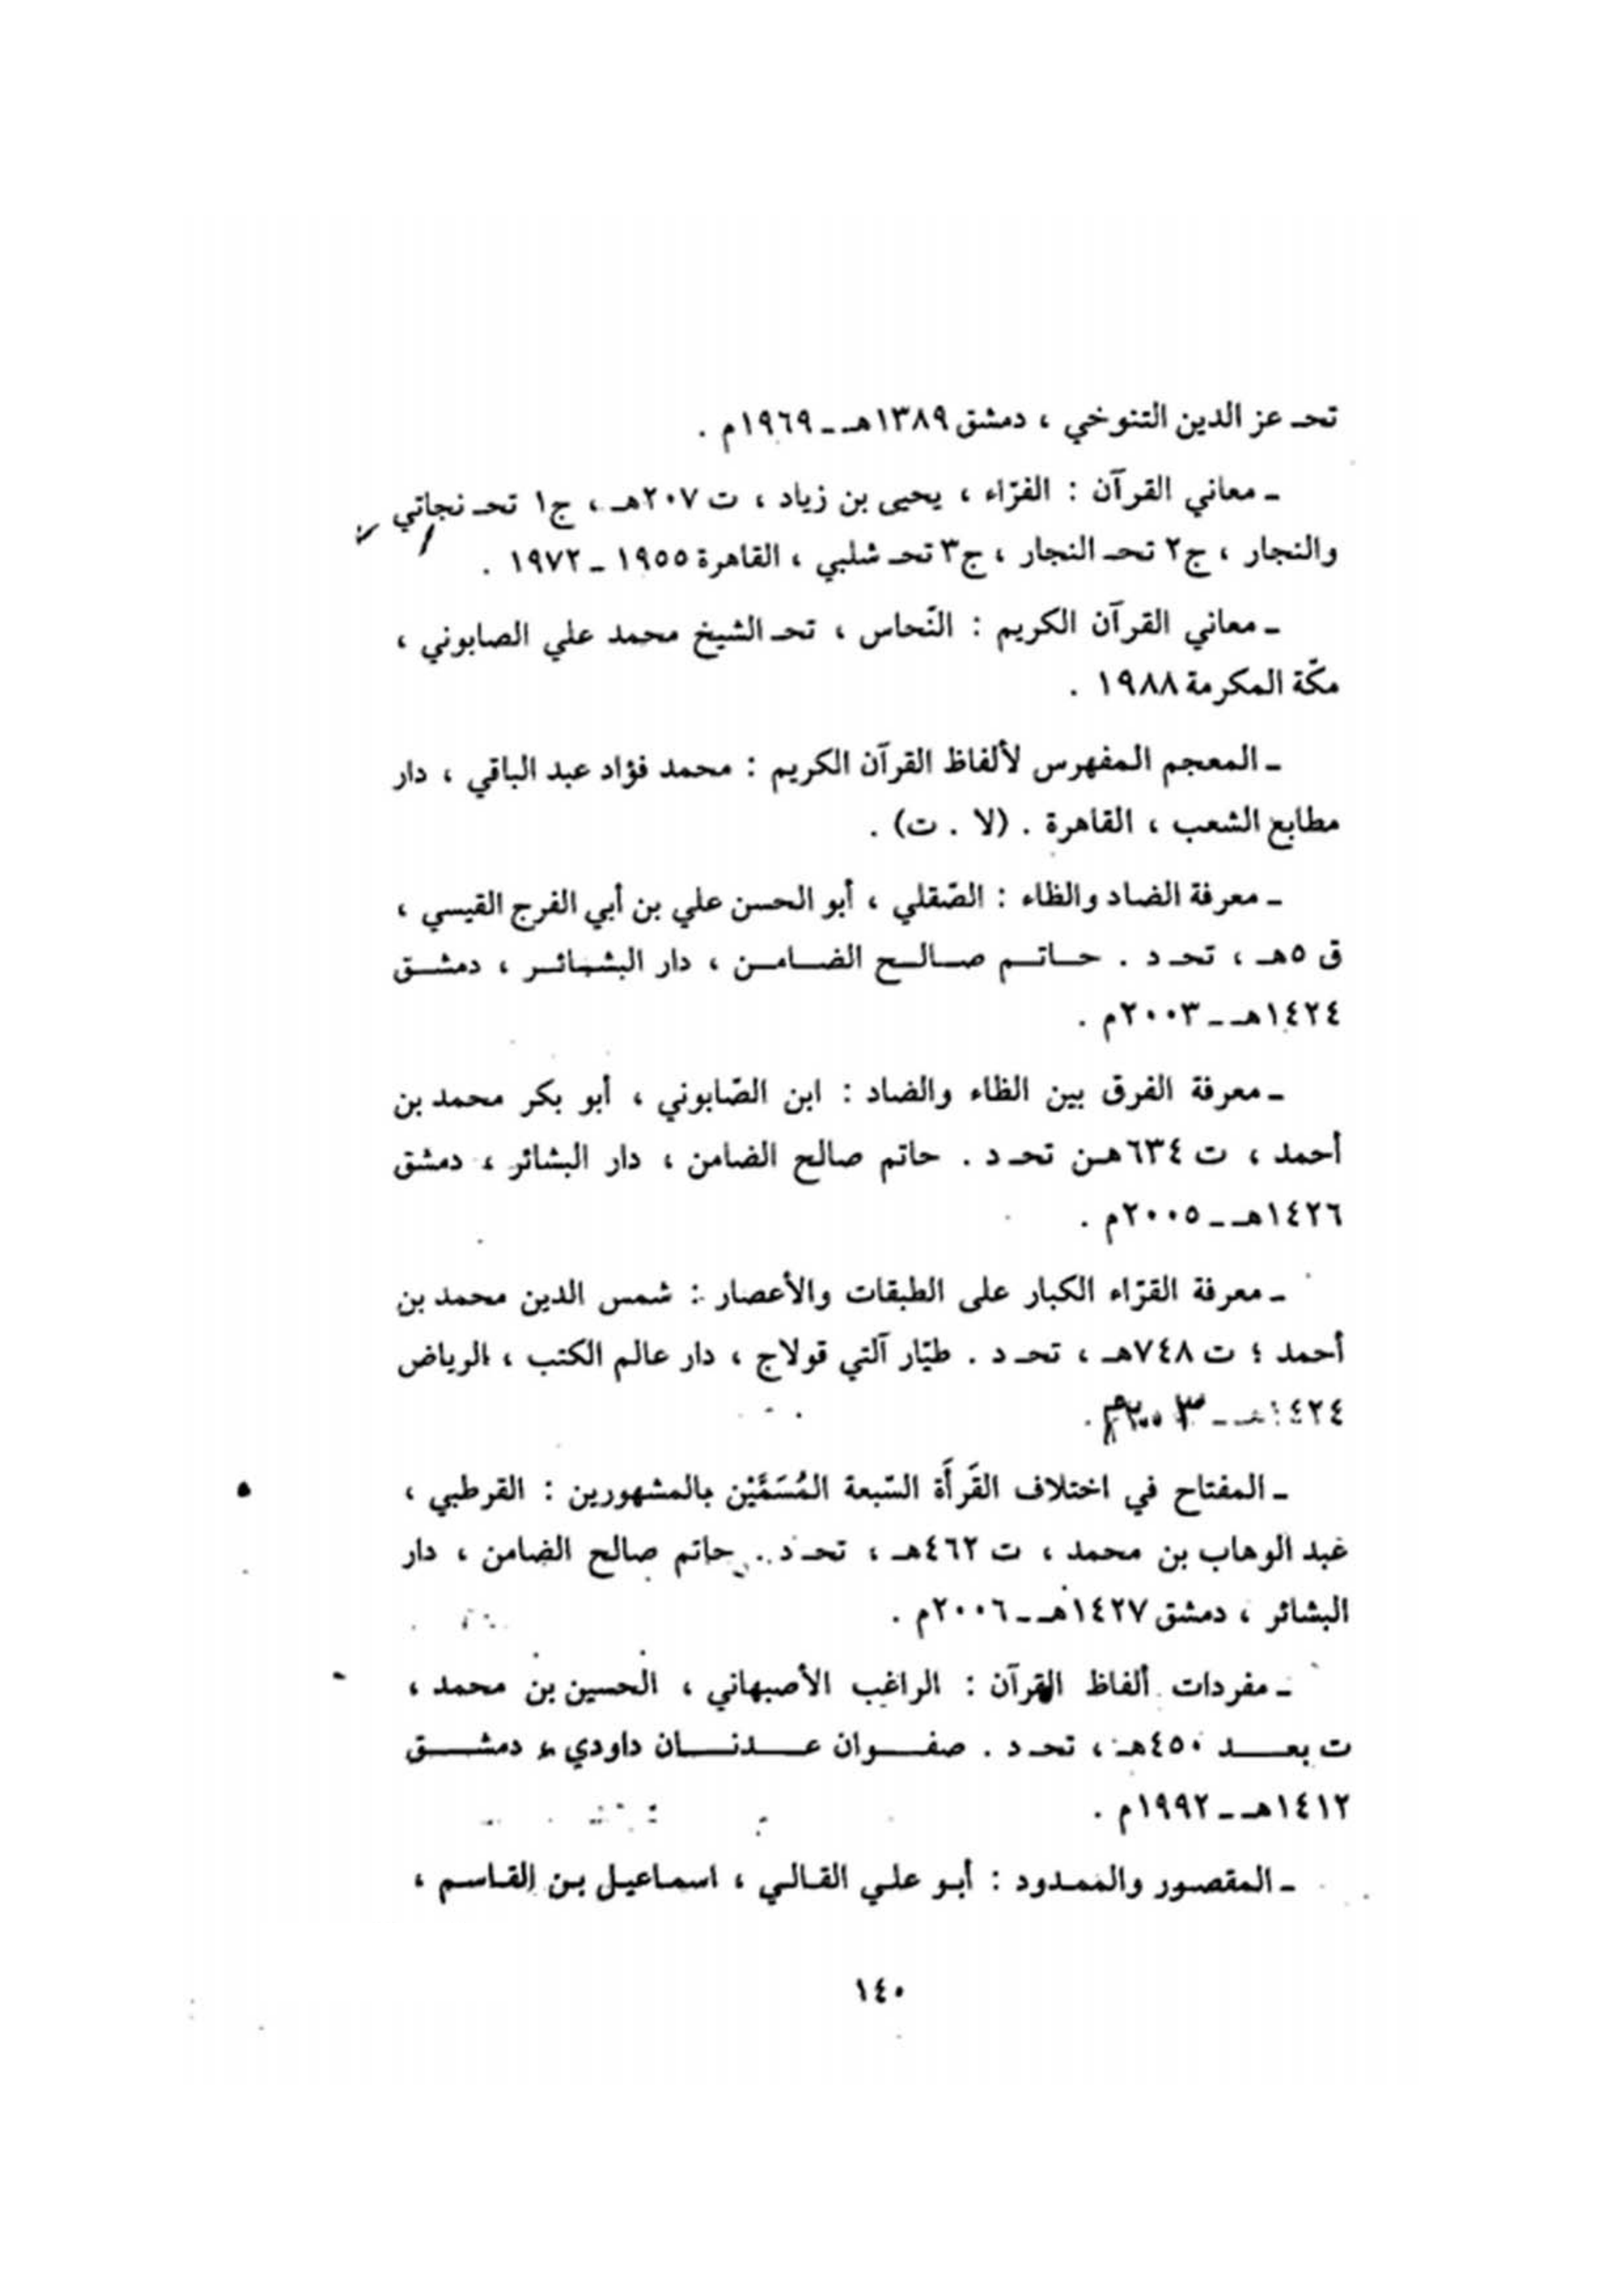 تحـ عز الدين التنوخي ، دمشق ١٣٨٩هـ ـ ١٩٦٩م .
ـ معاني القرآن : الفرّاء ، يحيى بن زياد ، ت ٢٠٧هـ ، ج١ تحـ نجاتي
والنجار ، ج٢ تحـ النجار ، ج٣ تحـ شلبي ، القاهرة ١٩٥٥ ـ ١٩٧٢ .
ـ معاني القرآن الكريم : النّحاس ، تحـ الشيخ محمد علي الصابوني ،
مكّة المكرمة ١٩٨٨ .
ـ المعجم المفهرس لألفاظ القرآن الكريم : محمد فؤاد عبد الباقي ، دار
مطابع الشعب ، القاهرة . (لا . ت) .
ـ معرفة الضاد والظاء : الصّقلي ، أبو الحسن علي بن أبي الفرج القيسي ،
ق ٥هـ ، تحـ د . حاتم صالح الضامن ، دار البشائر ، دمشق
١٤٢٤هـ ـ ٢٠٠٣م .
ـ معرفة الفرق بين الظاء والضاد : ابن الصّابوني ، أبو بكر محمد بن
أحمد ، ت ٦٣٤هـن تحـ د . حاتم صالح الضامن ، دار البشائر ، دمشق
١٤٢٦هـ ـ ٢٠٠٥م .
ـ معرفة القرّاء الكبار على الطبقات والأعصار : شمس الدين محمد بن
أحمد ؛ ت ٧٤٨هـ ، تحـ د . طيّار آلتي قولاج ، دار عالم الكتب ، الرياض
١٤٢٤هـ ـ ٢٠٠٣م .
ـ المفتاح في اختلاف القَرأَة السّبعة المُسَمَّيْن بالمشهورين : القرطبي ،
عبد الوهاب بن محمد ، ت ٤٦٢هـ ، تحـ د . حاتم صالح الضامن ، دار
البشائر ، دمشق ١٤٢٧هـ ـ ٢٠٠٦م .
ـ مفردات ألفاظ القرآن : الراغب الأصبهاني ، الحسين بن محمد ،
ت بعد ٤٥٠هـ ، تحـ د . صفوان عدنان داودي ، دمشق
١٤١٢هـ ـ ١٩٩٢م .
ـ المقصور والممدود : أبو علي القالي ، اسماعيل بن القاسم ،
١٤٠